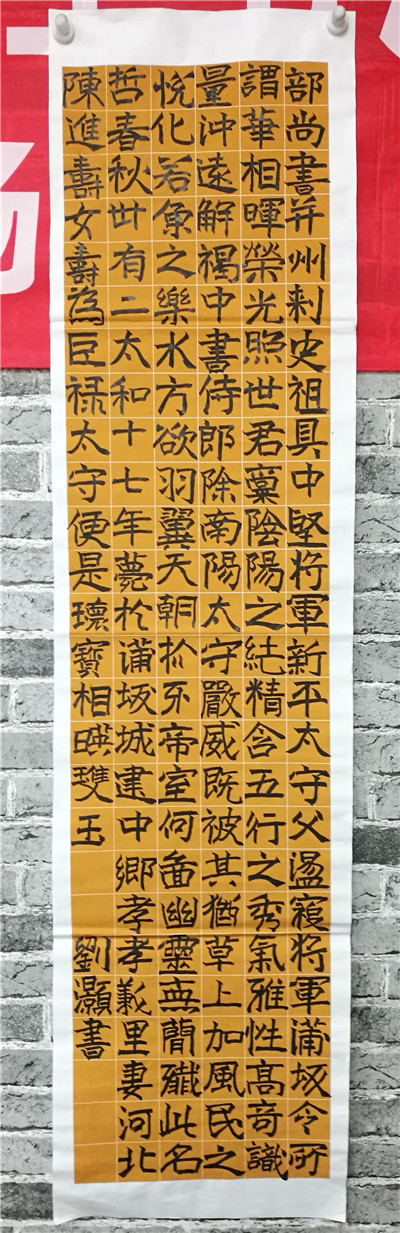 场
部尚書并州刺史祖具中堅將軍新平太守父盪寇將軍蒲坂令所
謂華相暉榮光照世君稟陰陽之純精含五行之秀氣雅性高奇識
量沖遠解褐中書侍郎除南陽太守嚴威既被其猶草上加風民之
悅化若魚之樂水方欲羽翼天朝抓牙帝室何啚幽靈無簡殲此名
哲春秋卅有二太和十七年薨於蒲坂城建中鄉孝孝義里妻河北
陳進壽女壽為巨祿太守便是瓌寶相暎玉
劉灝書